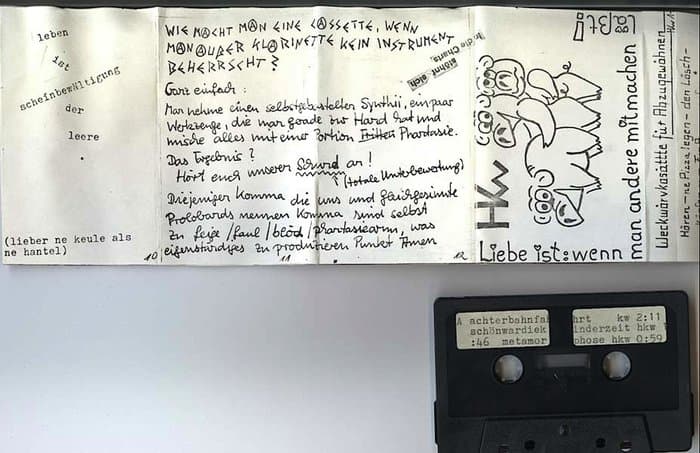 leben
ist
scheinbewältigung
der
leere
.
(lieber ne keule als
ne hantel)
10
WIE MACHT MAN EINE CASSETTE, WENN
MAN AUßER KLARINETTE KEIN INSTRUMENT
BEHERRSCHT?
In die Charts,
stöhnt sich
Ganz einfach:
Man nehme einen selbstgebastelten Synthii, ein paar
Werkzeuge, die man grade zur Hand hat und
mische alles mit einer Portion Phantasie.
Das Ergebnis?
Hört euch unseren Schund an!
(totale Unterbewertung)
Diejenigen Komma die uns und gleichgesinnte
nennen Komma sind selbst
zu feige/faul/blöd/phantasiearm, was
eigenständiges zu produzieren Punkt Amen
11
12
läßt!
HKW
Liebe ist: wenn
man andere mitmachen
für Abzugewöhnen
Hören - ne Pizza legen - den Lösch-
A achterbahnfa hrt kw 2:11
schönwardiek inderzeit hkw
:46 metamor phose hkw 0:59